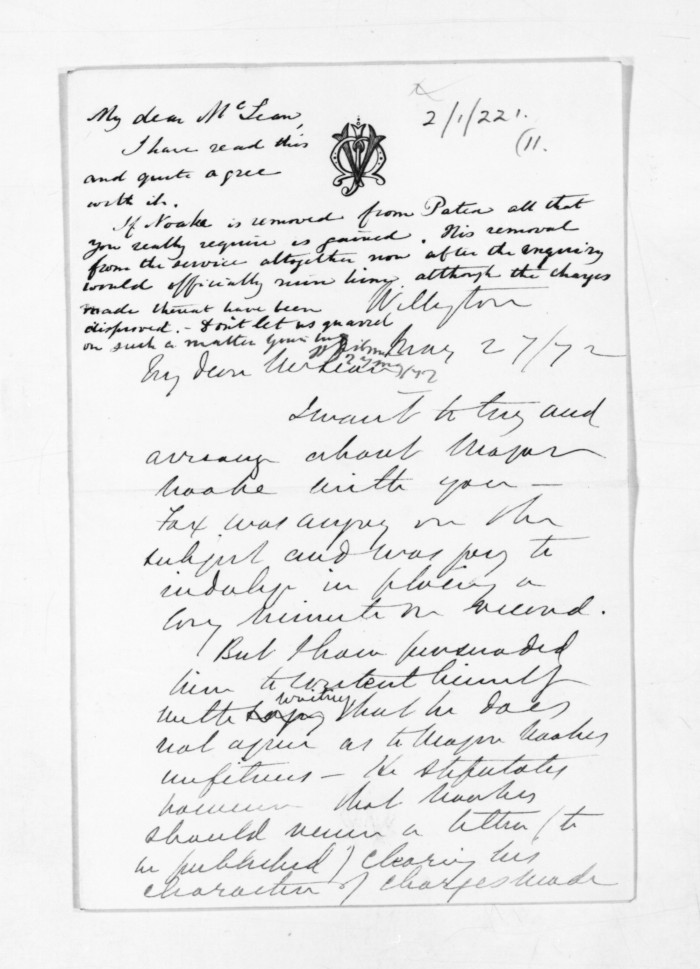 2/1/221.
(11.
My dear McLean,
I have read this
and quite agree
with it.
If Noake is removed from Patea all that
you really require is gained. His removal
from the service altogether now after the inquiry
would officially ruin him although the charges
made thereat have been
disproved. - Don't let us quarrel
on such a matter
27 May /72
Wellington
May 27/72
My dear McLean
I want to try and
arrange about Major
Noake with you -
Fox was angry on the
subject and was going to
indulge in placing a
long minute on record.
But I have persuaded
him to content himself
with writing that he does
not agree as to Major Noakes
unfitness - He stipulates
however that Noakes
should receive a letter (to
be published) clearing his
character of charges made